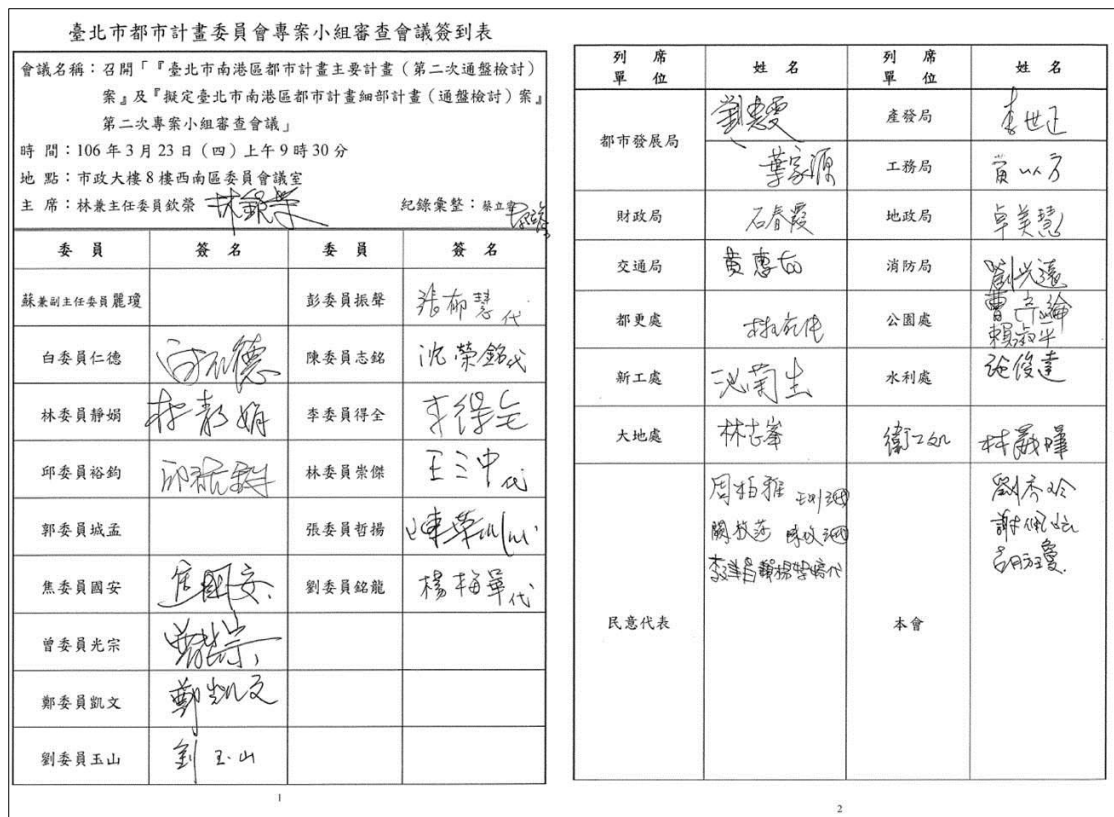 臺北市都市計畫委員會專案小組審查會議簽到表
會議名稱：召開「『臺北市南港區都市計畫主要計畫（第二次通盤檢討）
案』及『擬定臺北市南港區都市計畫細部計畫（通盤檢討）案』
第二次專案小組審查會議」
時 間：106 年 3 月 23 日（四）上午 9 時 30 分
地 點：市政大樓 8 樓西南區委員會議室
主 席：林兼主任委員欽榮 林欽榮 紀錄彙整：蔡立睿
委 員 簽 名 委 員 簽 名
蘇兼副主任委員麗瓊 彭委員振聲 張郁慧代
白委員仁德 白仁德 陳委員志銘 沈榮銘代
林委員靜娟 林靜娟 李委員得全 李得全
邱委員裕鈞 邱裕鈞 林委員崇傑 王三中代
郭委員城孟 張委員哲揚
焦委員國安 焦國安 劉委員銘龍 楊梅華代
曾委員光宗 曾光宗
鄭委員凱文 鄭凱文
劉委員玉山 劉玉山
1
列 席 單 位 姓 名 列 席 單 位 姓 名
都市發展局 劉惠雯 產發局 李世正
葉家源 工務局 黃以方
財政局 石春霞 地政局 卓美慧
交通局 黃惠如 消防局 劉光遠
都更處 公園處 曹彥綸
賴淑平
新工處 沁菊生 水利處 張俊達
大地處 林志峯 衛工處
民意代表 周柏雅 本會 劉秀玲
闕枚莎 謝佩
2